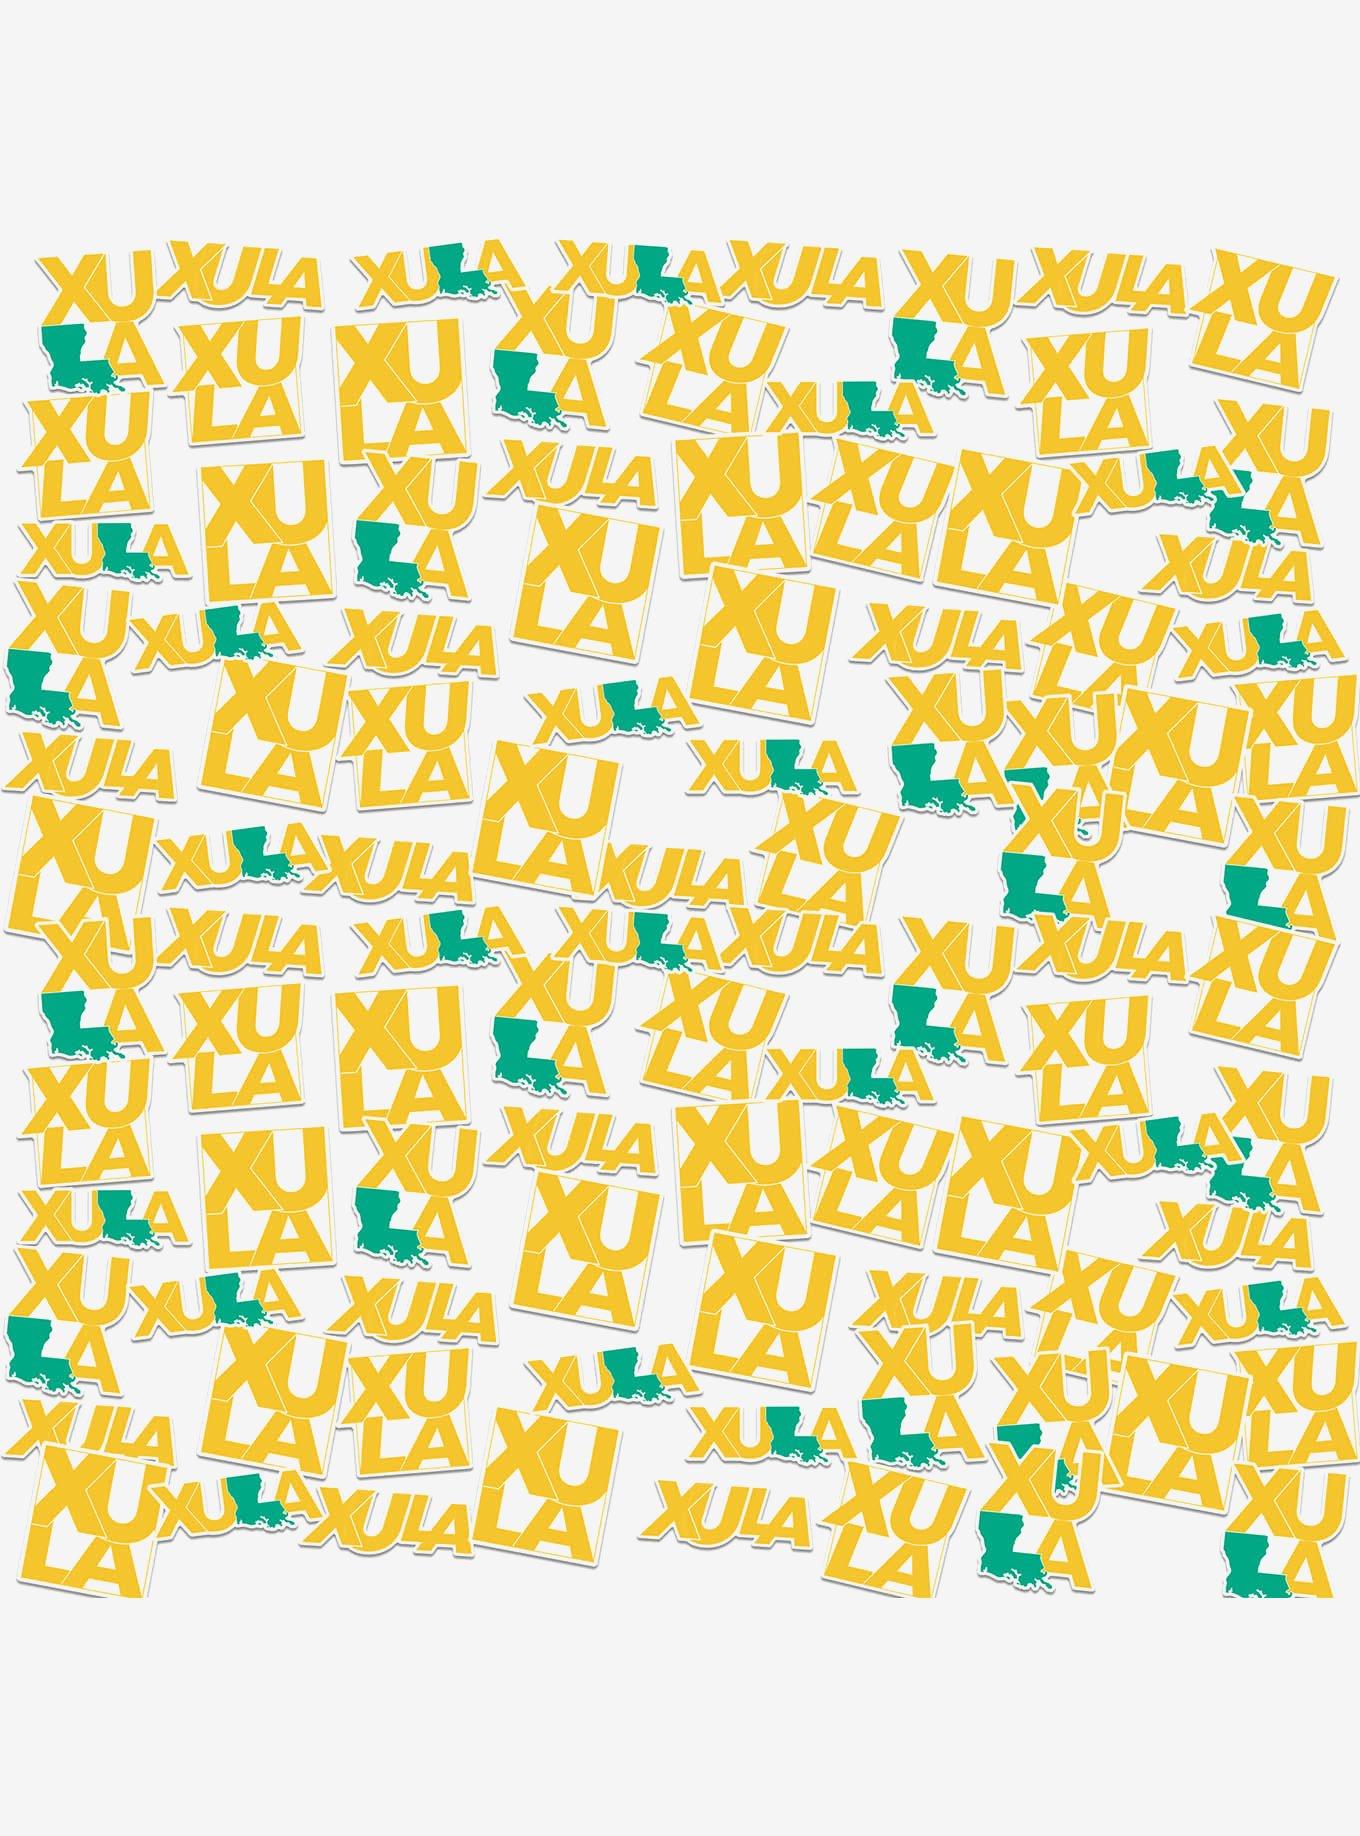 XU
LA
XULA
XULA
XULA
XULA
XU
LA
XULA
XU
LA
XU
LA
XU
LA
XU
LA
XU
LA
XULA
XU
LA
XU
LA
XU
LA
XU
LA
XULA
XU
LA
XU
LA
XU
LA
XULA
XU
LA
XULA
XU
LA
XULA
XU
LA
XULA
XULA
XU
LA
XULA
XU
LA
XULA
XU
LA
XU
LA
XULA
XU
LA
XU
A
XU
LA
XU
LA
XULA
XU
LA
XULA
XU
LA
XULA
XULA
XULA
XU
LA
XU
LA
XU
LA
XU
LA
XULA
XULA
XULA
XULA
XU
LA
XULA
XU
LA
XU
LA
XU
LA
XU
LA
XU
LA
XULA
XU
LA
XU
LA
XU
LA
XU
LA
XULA
XU
LA
XU
LA
XU
LA
XULA
XU
LA
XULA
XU
LA
XULA
XU
LA
XULA
XULA
XU
LA
XULA
XU
LA
XULA
XU
LA
XU
LA
XULA
XU
LA
XU
A
XU
LA
XU
LA
XULA
XU
LA
XULA
XU
LA
XULA
XULA
XULA
XU
LA
XU
LA
XU
LA